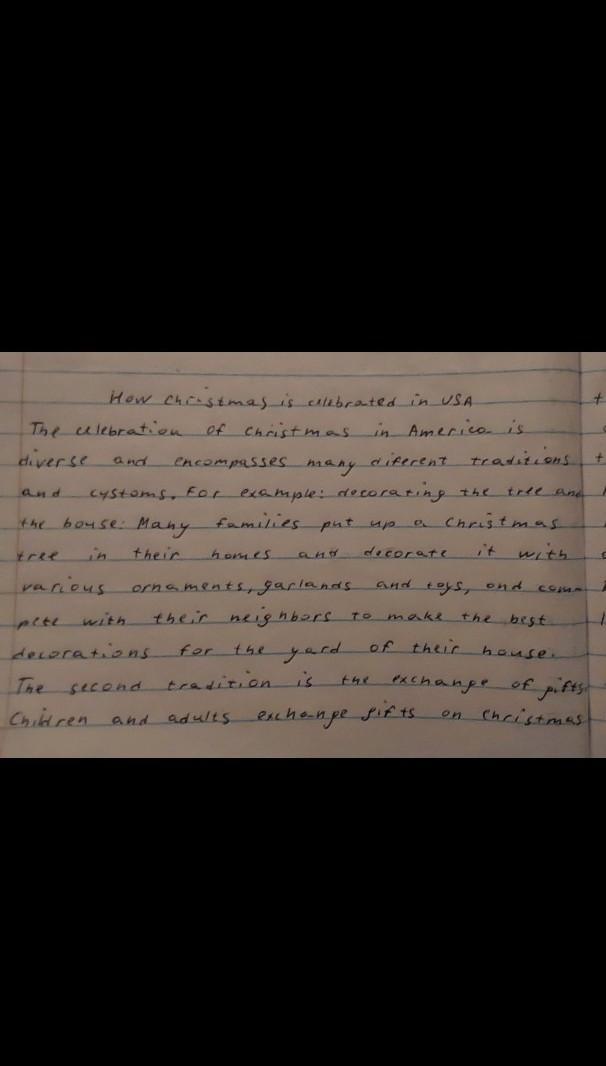 How christmas is celebrated in USA
The celebration of christmas in America is
diverse and encompasses many diferent traditions
and cystoms. For example: decorating the tree and
the house: Many families put up a Christmas
tree in their homes and decorate it with
various ornaments, garlands and toys, and com-
pete with their neighbors to make the best
decorations for the yard of their house.
The second tradition is the exchange of gifts.
Children and adults exchange gifts on christmas